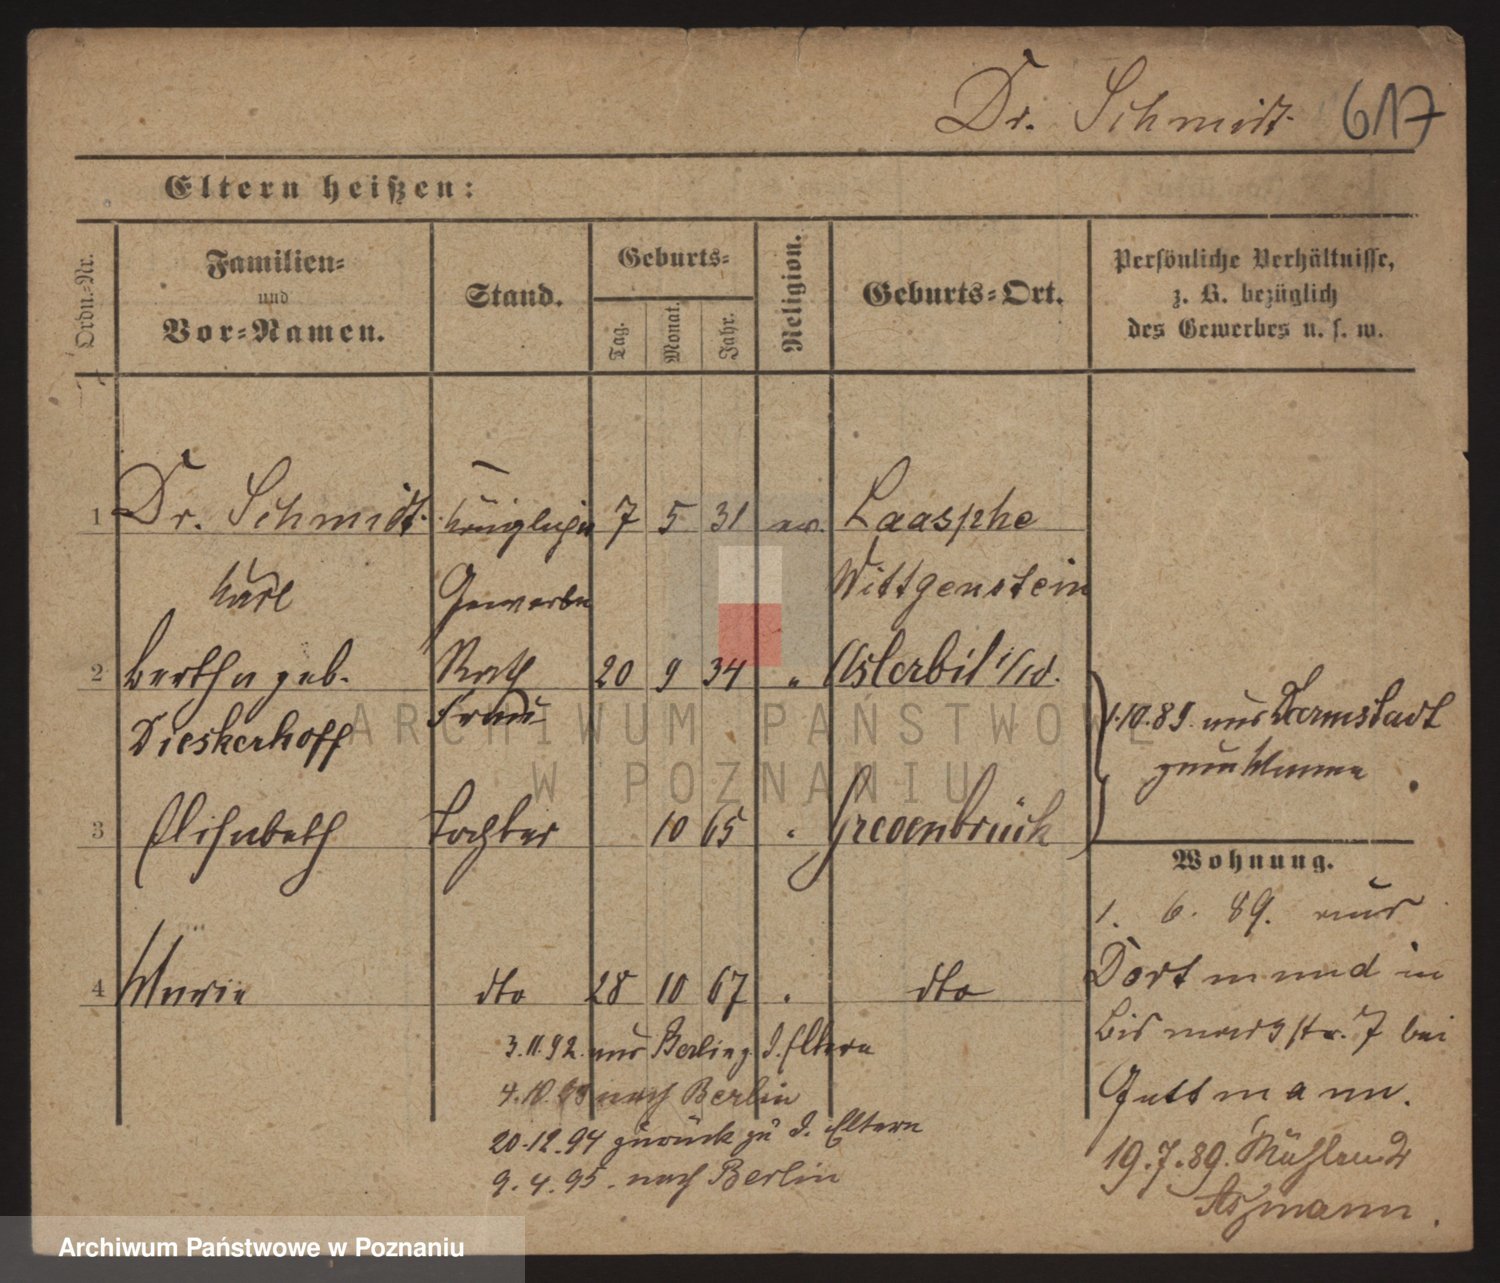 Dr. Schmidt. 617
Eltern heißen:
Ordn.-Nr.
Familien-
und
Vor-Namen.
Stand.
Geburts-
Tag.
Monat.
Jahr.
Religion.
Geburts-Ort.
Persönliche Verhältnisse,
z. B. bezüglich
des Gewerbes u. s. w.
1 Dr. Schmidt. Königlicher 7 5 31 ev. Laasphe
Karl Gewerbe Wittgenstein
2 Bertha geb. Rath 20 9 34 "
Dieskerhoff Frau
1.10.89. aus Darmstadt
zum Manne
3 Elisabeth Tochter 10 65 " Grevenbrück
Wohnung.
1. 6. 89. aus
Dortmund in
Bismarckstr. 7 bei
Guttmann.
19.7.89. Mühlen
Aßmann.
4 Marie dto 28 10 67 " dto
3.11.92. aus Berlin z. d. Eltern
4.10.93 nach Berlin
20.12.94 zurück zu d. Eltern
9.4.95. nach Berlin
ARCHIWUM PAŃSTWOWE
W POZNANIU
Archiwum Państwowe w Poznaniu